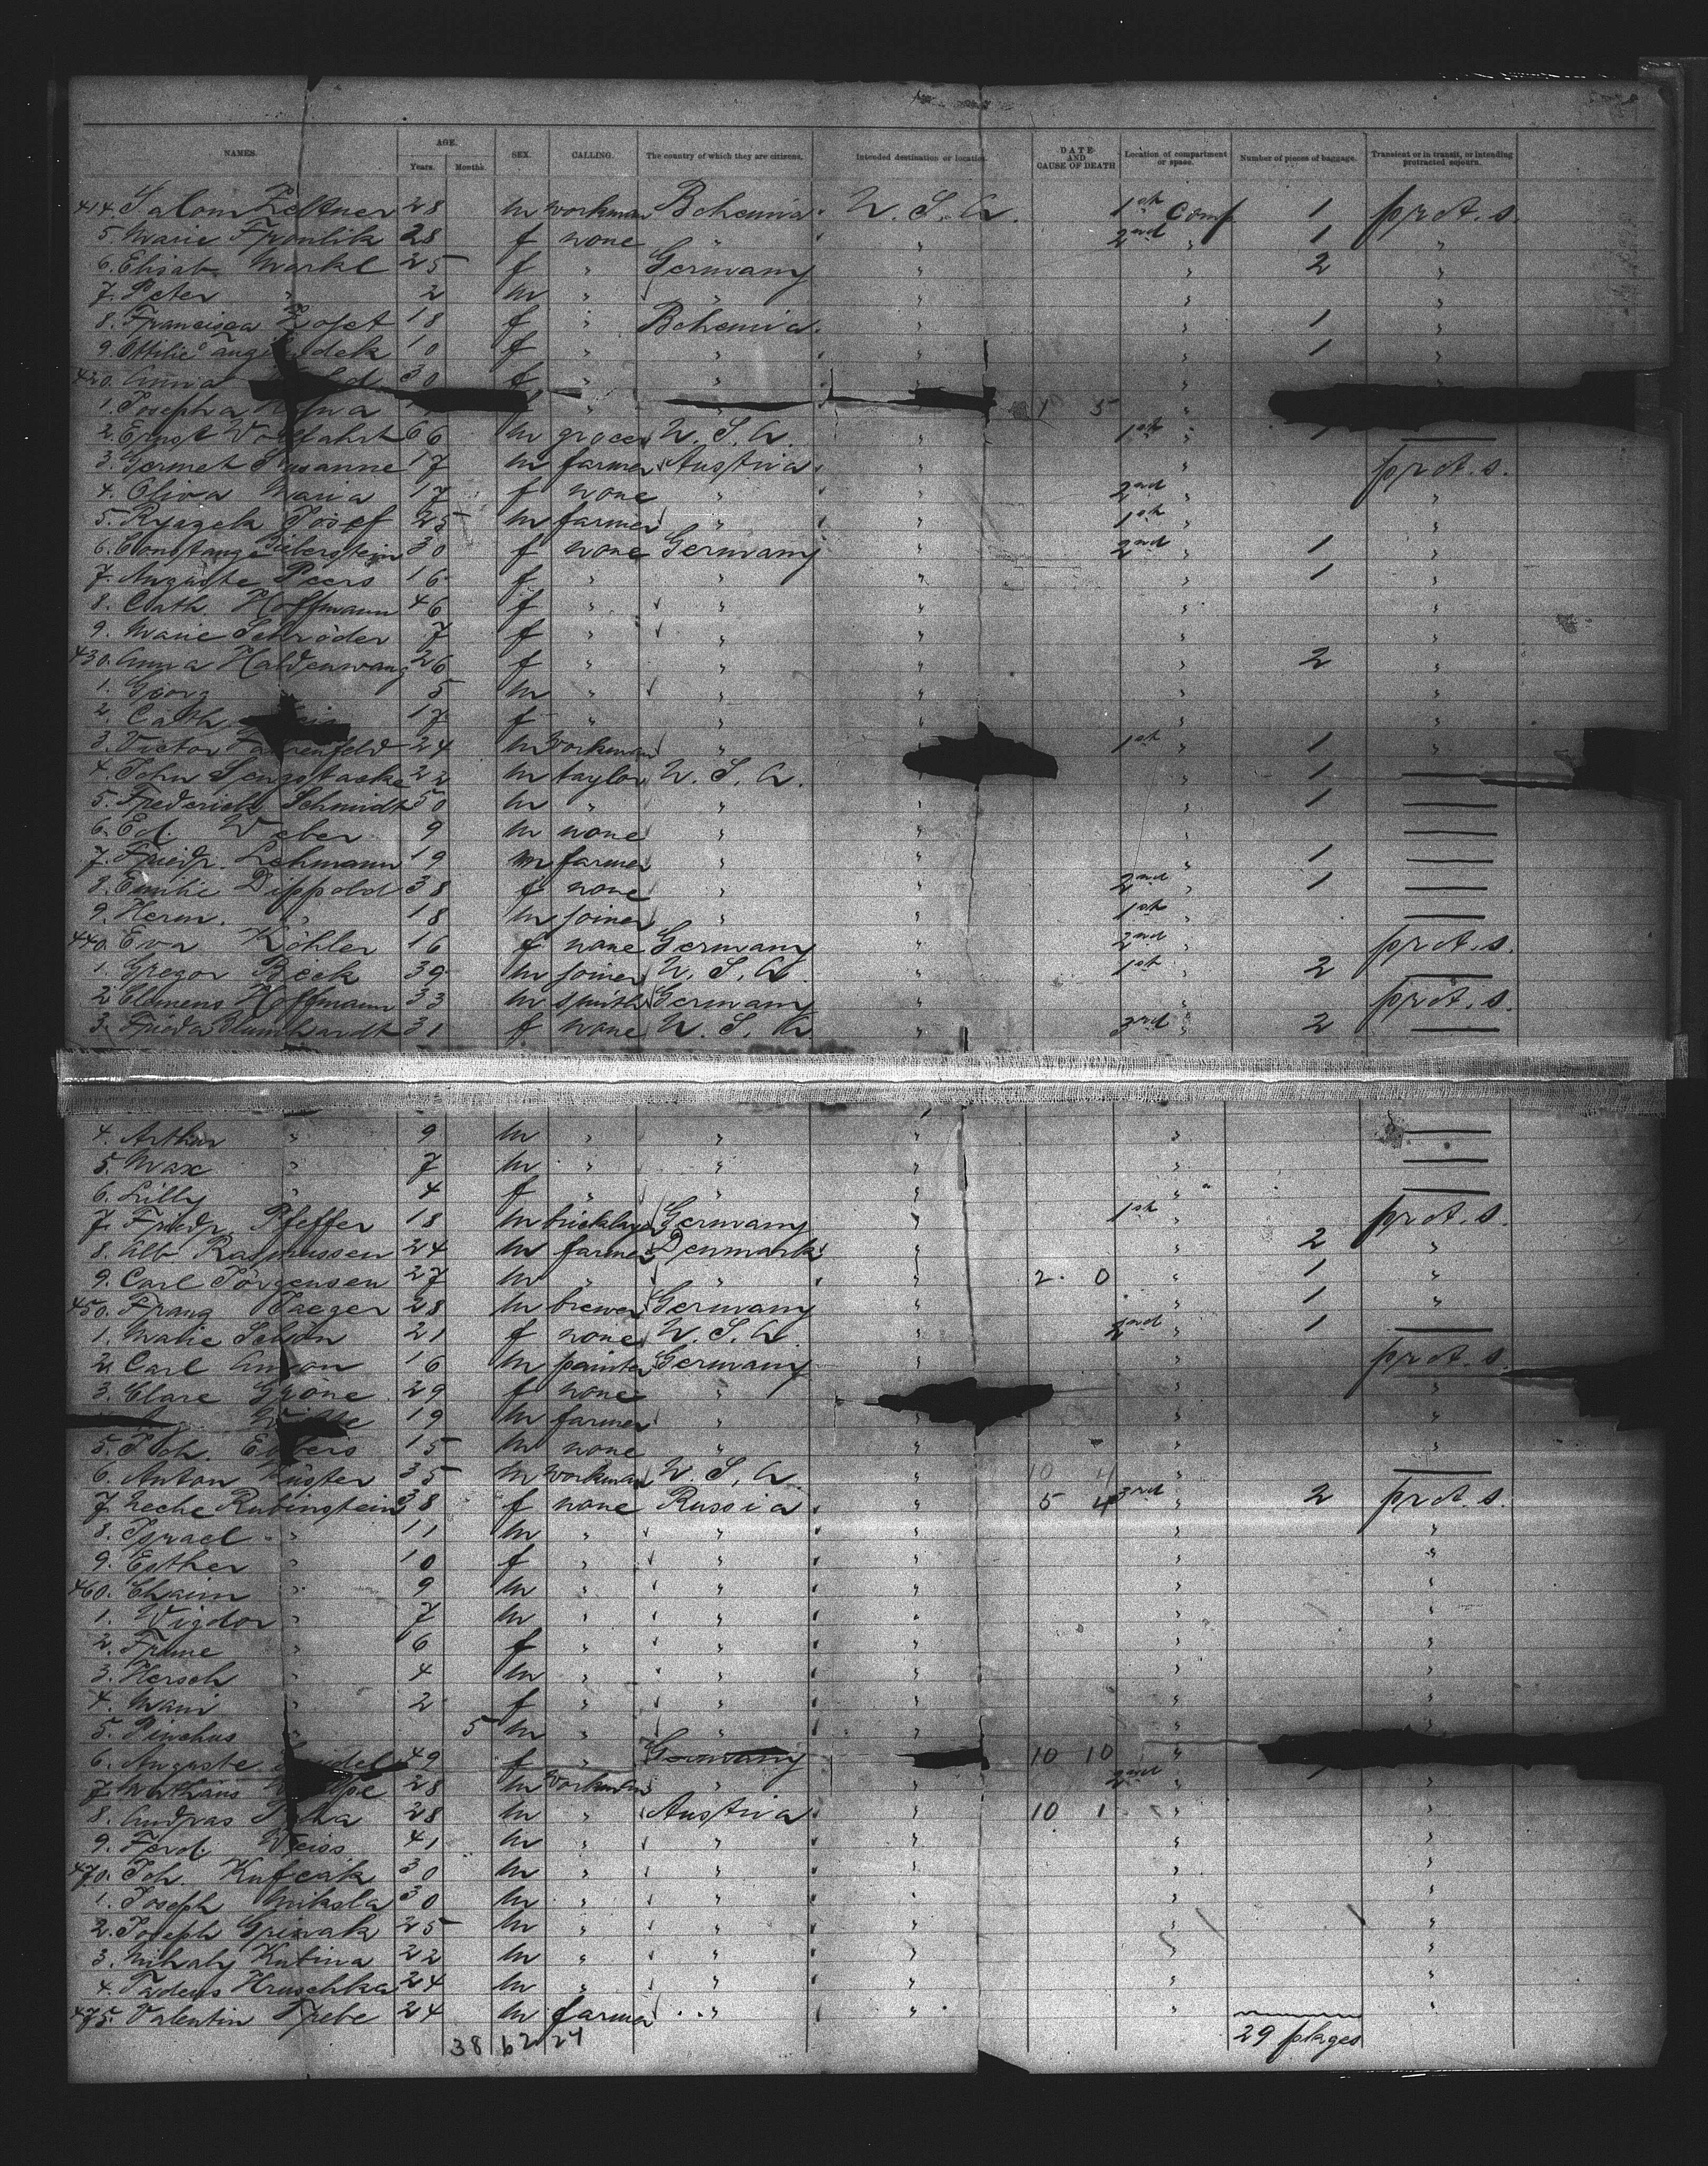 NAMES. AGE. SEX. CALLING. The country of which they are citizens. Intended destination or location. DATE AND CAUSE OF DEATH Location of compartment or space. Number of pieces of baggage. Transient or in transit, or intending protracted sojourn.
Years. Months.
414. Salom Zeltner 28 m workman Bohemia U. S. A. 1st Comp 1 prot. s.
5. Marie 28 f none " " 2nd " 1 "
6. Elisab. Markl 25 f " Germany " " 2 "
7. Peter " 2 m " " " " "
8. Francisca 18 f " Bohemia " " 1 "
9. Ottilie 10 f " " " " 1 "
420. Anna 30 f " " " "
1. Josepha " " "
2. Ernst Wollfahrt 66 m grocer U. S. A. " 1st " —
3. Germet Susanne 17 m farmer Austria " " prot. s.
4. Oliva Maria 17 f none " " 2nd " "
5. Ryszek Josef 25 m farmer " " 1st " "
6. Constanze Bieberstein 30 f none Germany " 2nd " 1 "
7. Auguste Peers 16 f " " " " 1 "
8. Cath Hoffmann 46 f " " " " "
9. Marie Schröder 7 f " " " " "
430. Anna Haldenwang 26 f " " " " 2 "
1. Georg 5 m " " " " "
2. Cath 17 f " " " " "
3. Victor 24 m workman " 1st " 1 "
4. John Sengstacke 22 m taylor U. S. A. " 1 —
5. Frederick Schmidt 50 m " " " " 1 —
6. Ed. Weber 9 m none " " —
7. Friedr. Lehmann 19 m farmer " " " 1 —
8. Emilie Dippold 38 f none " " 2nd " 1 —
9. Herm. " 18 m joiner " " 1st " —
440. Eva Köhler 16 f none Germany " 2nd " prot. s.
1. Gregor Beck 39 m joiner U. S. A. " 1st " 2 —
2. Clemens Hoffmann 33 m smith Germany " " prot. s.
3. Frieda Blumhardt 31 f none U. S. A. " 3rd " 2 —
4. Arthur " 9 m " " " " —
5. Max " 7 m " " " " —
6. Lilly " 4 f " " " " —
7. Friedr. Pfeffer 18 m bricklayer Germany 1st " prot. s.
8. Alb. Rasmussen 24 m farmer Denmark " " 2 "
9. Carl Jörgensen 27 m " " " 2. 0 " 1 "
450. Franz Jaeger 28 m brewer Germany " " 1 "
1. Marie Schön 21 f none U. S. A. " 2nd " 1 —
2. Carl Anton 16 m painter Germany " " prot. s.
3. Clare Gröne 29 f none " " "
19 m farmer " " " "
5. Joh. Ebbers 15 m none " " " "
6. Anton Küster 35 m workman U. S. A. " 10 4 " —
7. Zeche Rubinstein 38 f none Russia " 5 4 3rd " 2 prot. s.
8. Israel " 11 m " " " " "
9. Esther " 10 f " " " " "
460. Chaim " 9 m " " " " "
1. Vigdor " 7 m " " " " "
2. Frume " 6 f " " " " "
3. Hersch " 4 m " " " " "
4. Mani " 2 f " " " " "
5. Pinchus " 5 m " " " "
6. Auguste 49 f " Germany 10 10 "
7. 28 m workman " " 2nd " "
8. Andras 28 m " Austria " 10 1 " "
9. Ferd. Weiss 41 m " " " " "
470. Joh. Kufcak 30 m " " " " "
1. Joseph Miksla 30 m " " " " "
2. Joseph Griwak 25 m " " " " "
3. Mihaly Kutina 22 m " " " " "
4. Tadeus Hruschka 24 m " " " " "
475. Valentin Trebe 24 m farmer " " " "
38 62 24 29 plages